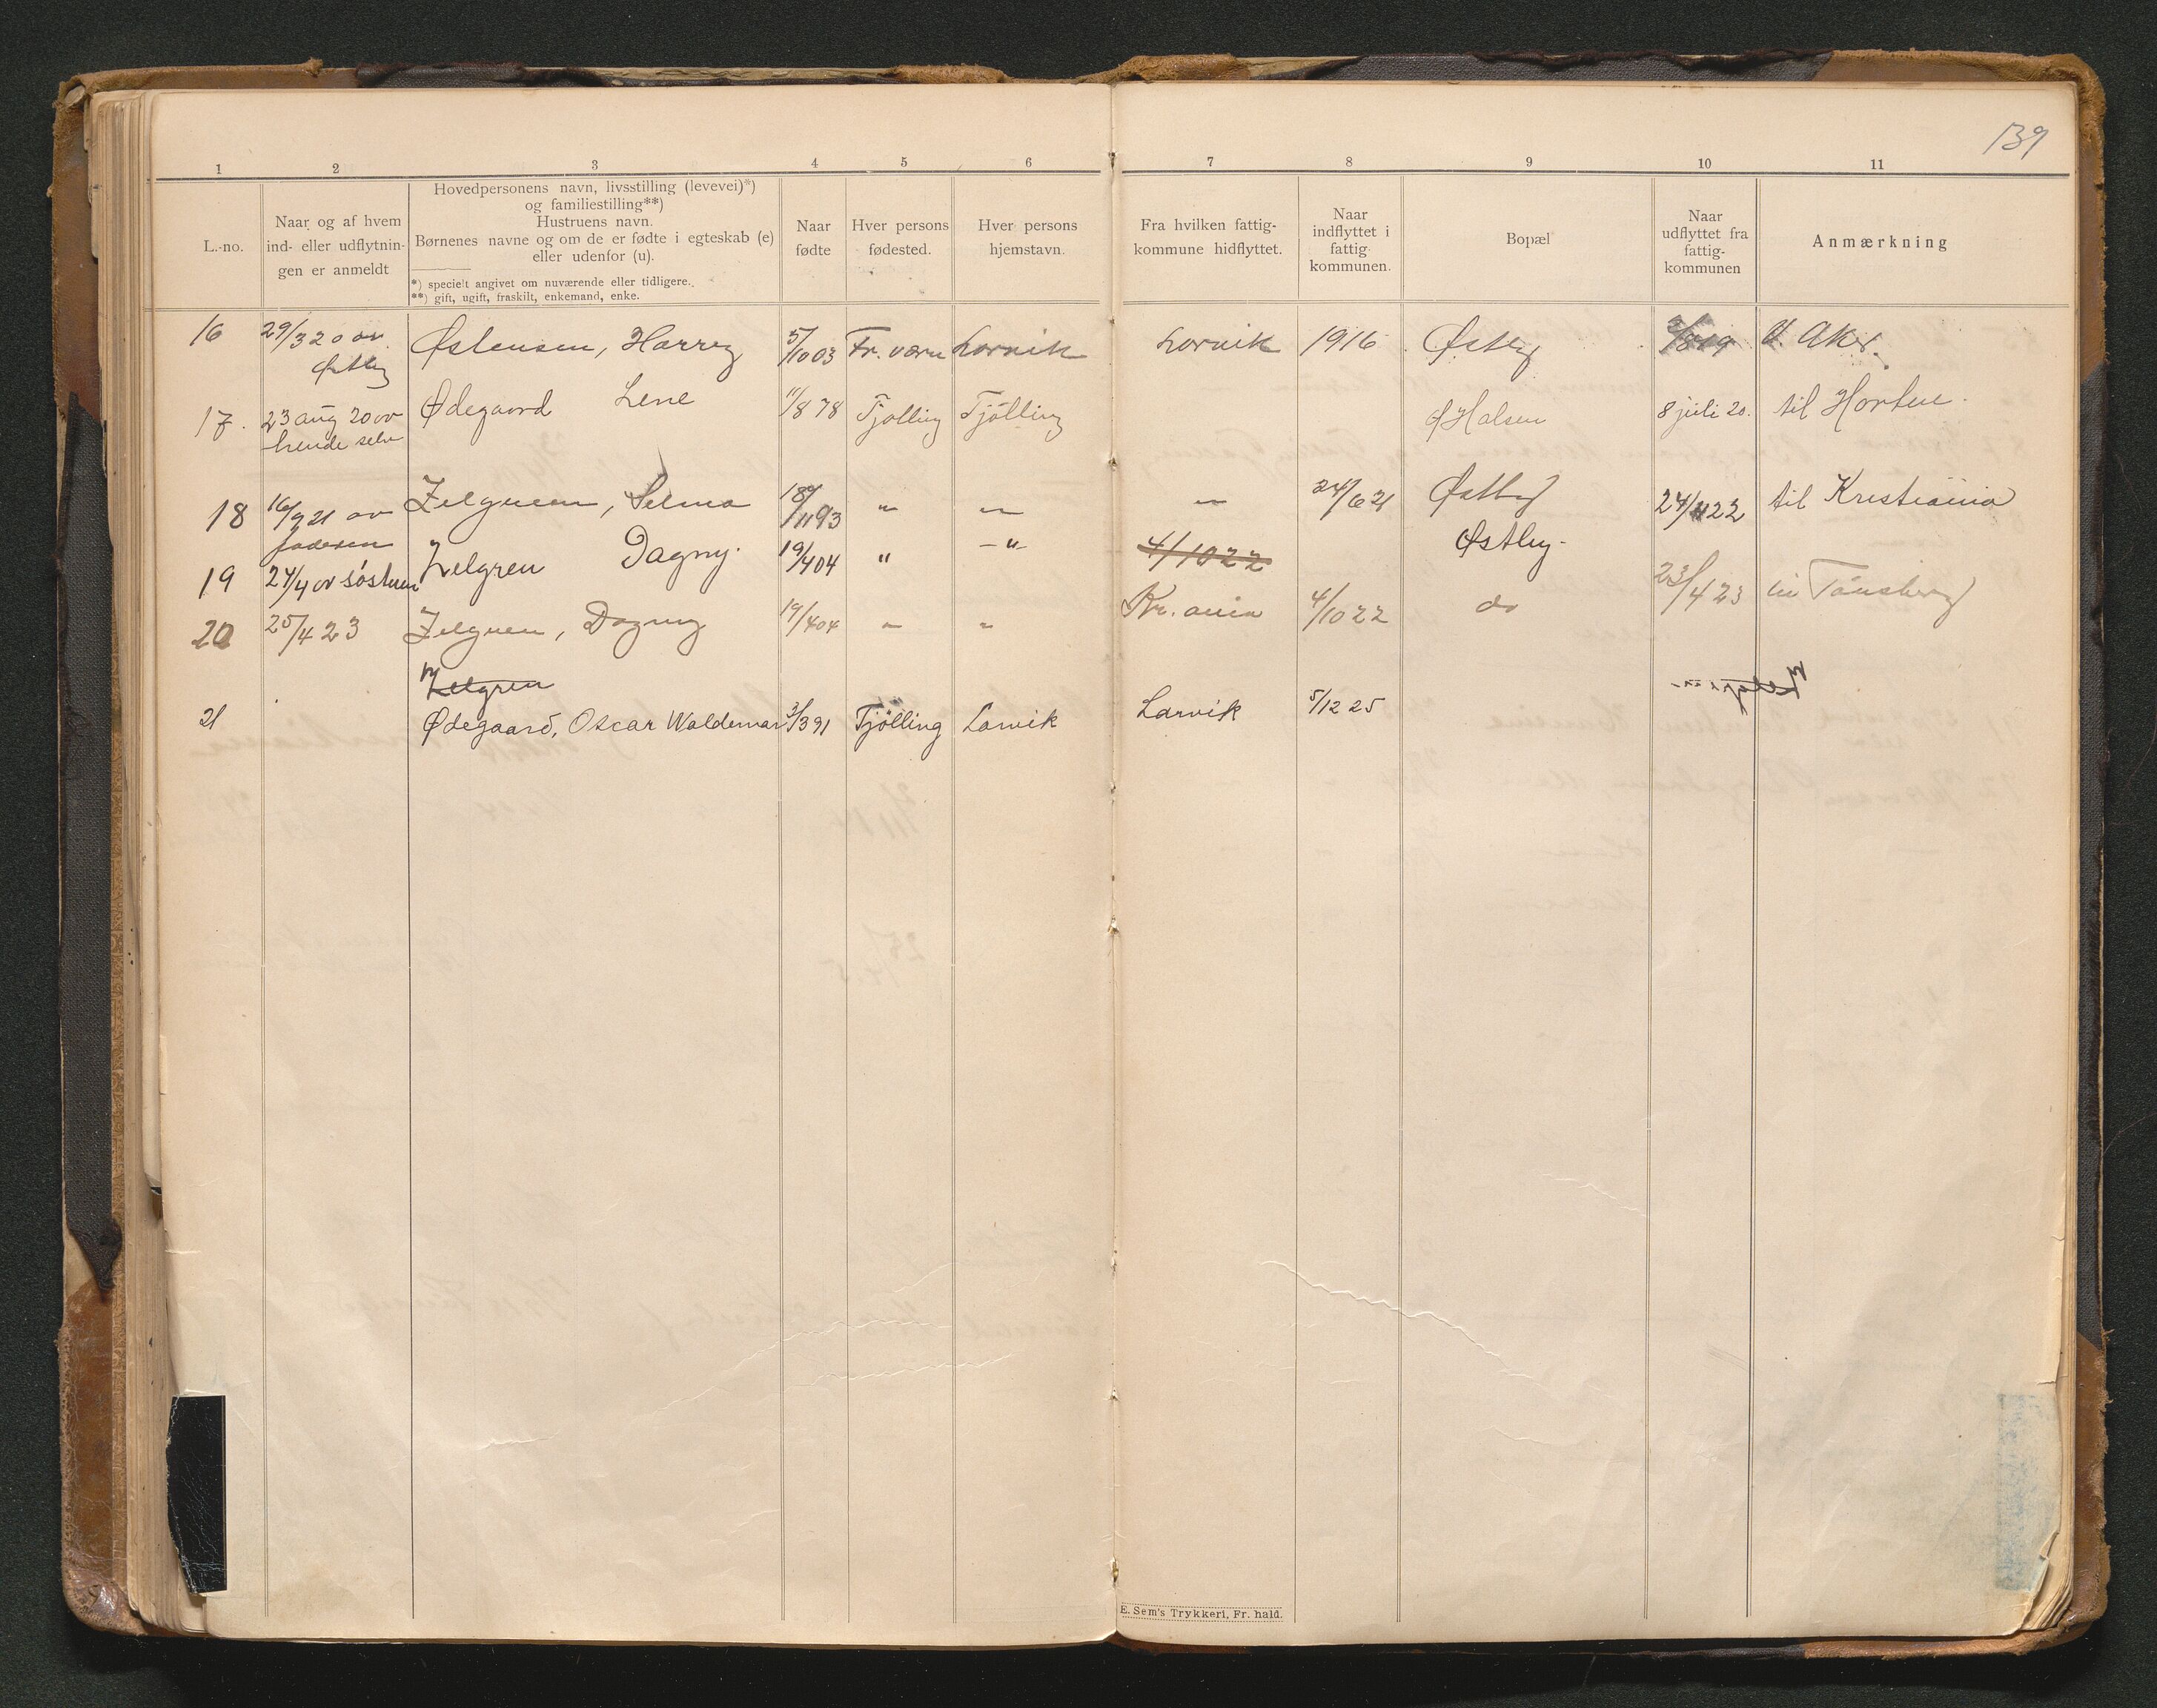 139
1 2 3 4 5 6 7 8 9 10 11
L.-no.
Naar og af hvem
ind- eller udflytnin-
gen er anmeldt
Hovedpersonens navn, livsstilling (levevei)*)
og familiestilling**)
Hustruens navn.
Børnenes navne og om de er fødte i egteskab (e)
eller udenfor (u).
*) specielt angivet om nuværende eller tidligere.
**) gift, ugift, fraskilt, enkemand, enke.
Naar
fødte
Hver persons
fødested.
Hver persons
hjemstavn.
Fra hvilken fattig-
kommune hidflyttet.
Naar
indflyttet i
fattig-
kommunen.
Bopæl
Naar
udflyttet fra
fattig-
kommunen
Anmærkning
16 29/3 20 av Østensen, Harry 5/10 03 Fr. værn Larvik Larvik 1916 Østby 2/8 19 t. Aker.
Østby
17. 23 aug 20 av Ødegaard Lene 11/8 78 Tjølling Tjølling Ø Halsen 8 juli 20. til Horten.
hende selv
18 16/9 21 av Zelgreen, Selma 18/11 93 " " " 24/6 21 Østby 24/11 22 til Kristiania
faderen
19 24/4 av søsteren Zelgren Dagny. 19/4 04 " -"- 4/10 22 Østby.
20 25/4 23 Zelgreen, Dagny 19/4 04 " " Kr.ania 4/10 22 do 23/4 23 til Tønsberg
Zelgren
21 Ødegaard, Oscar Waldemar 3/3 91 Tjølling Larvik Larvik 5/12 25
E. Sem's Trykkeri, Fr. hald.